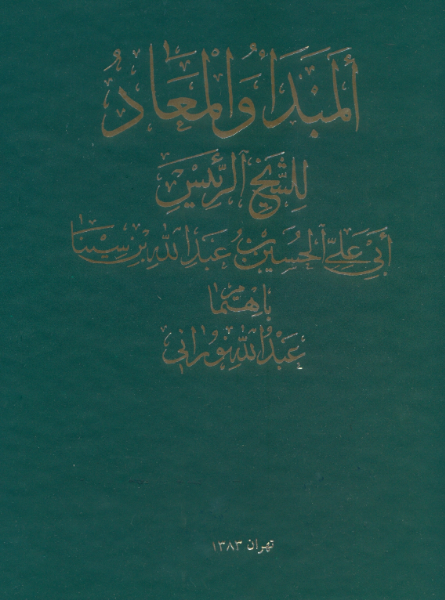 ألمَبدَأُ وَالْمَعَادُ
لِلشَّيْخِ الرَّئِيسِ
أَبِي عَلِيّ الْحُسَيْنِ بْنِ عَبْدِ اللهِ بْنِ سِينَا
بِاهْتِمَامِ
عَبْدُ اللهِ نُورَانِي
تهران ۱۳۸۳